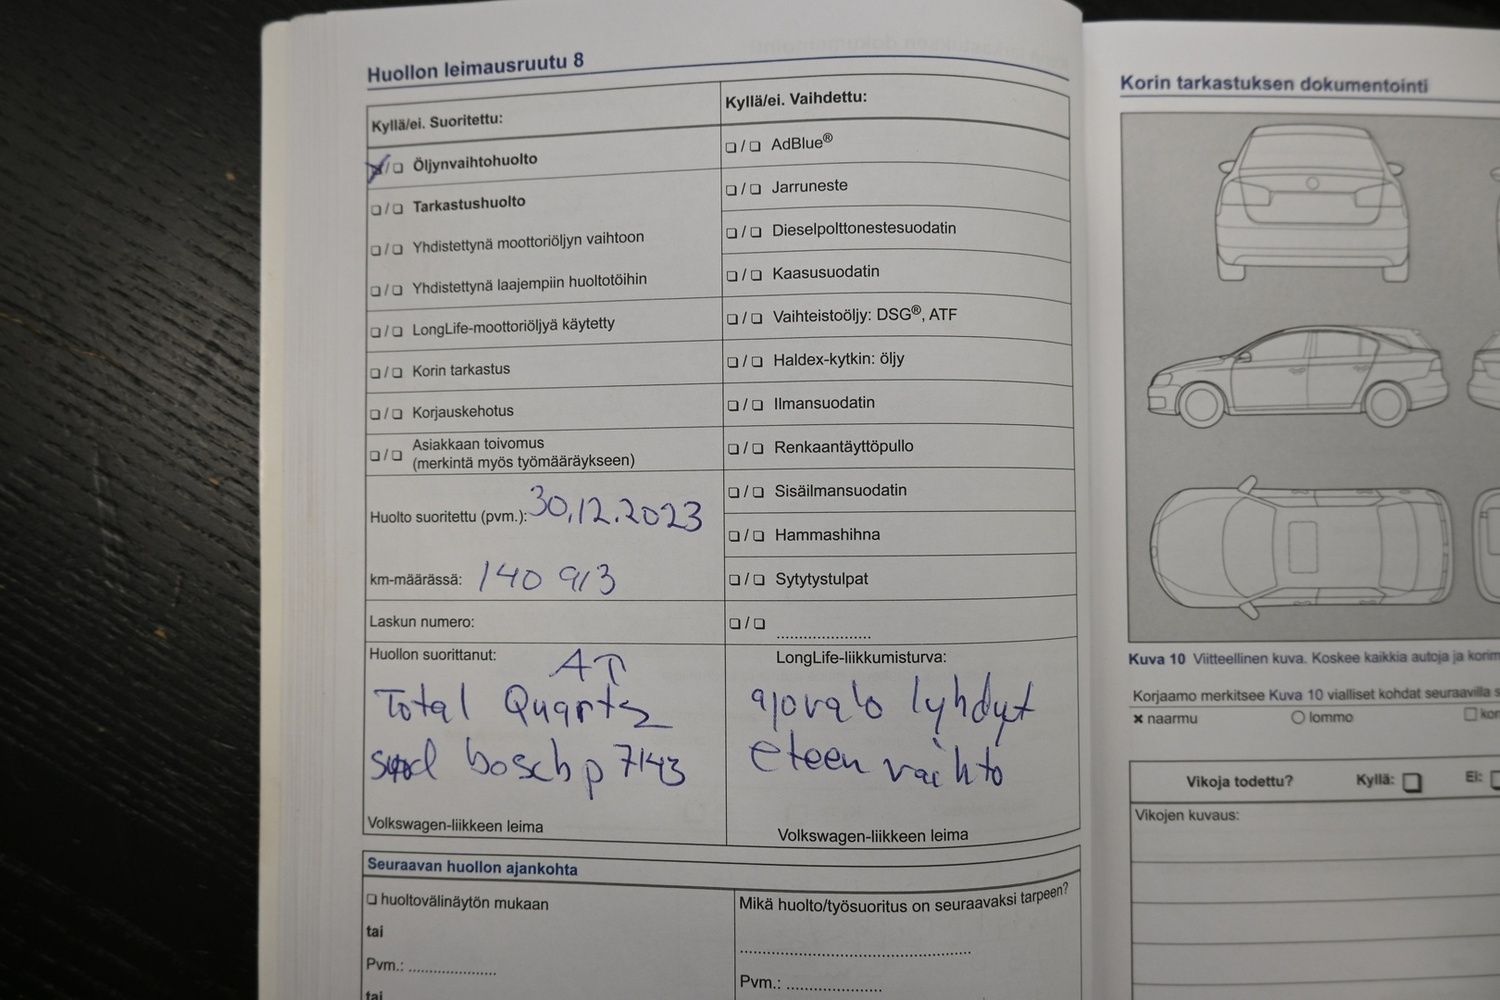 Huollon leimausruutu 8
Kyllä/ei. Suoritettu:
Öljynvaihtohuolto
Tarkastushuolto
Yhdistettynä moottoriöljyn vaihtoon
Yhdistettynä laajempiin huoltotöihin
LongLife-moottoriöljyä käytetty
Korin tarkastus
Korjauskehotus
Asiakkaan toivomus
(merkintä myös työmääräykseen)
Huolto suoritettu (pvm.): 30.12.2023
km-määrässä: 140 913
Laskun numero:
Huollon suorittanut: AT
Total Quartz
bosch p 7143
Volkswagen-liikkeen leima
Kyllä/ei. Vaihdettu:
AdBlue®
Jarruneste
Dieselpolttonestesuodatin
Kaasusuodatin
Vaihteistoöljy: DSG®, ATF
Haldex-kytkin: öljy
Ilmansuodatin
Renkaantäyttöpullo
Sisäilmansuodatin
Hammashihna
Sytytystulpat
LongLife-liikkumisturva:
ajovalo lyhdyt
eteen vaihto
Volkswagen-liikkeen leima
Seuraavan huollon ajankohta
huoltovälinäytön mukaan
tai
Pvm.:
tai
Mikä huolto/työsuoritus on seuraavaksi tarpeen?
Pvm.:
Korin tarkastuksen dokumentointi
Kuva 10 Viitteellinen kuva. Koskee kaikkia autoja ja
Korjaamo merkitsee Kuva 10 vialliset kohdat seuraavilla
naarmu
lommo
Vikoja todettu? Kyllä: Ei:
Vikojen kuvaus: